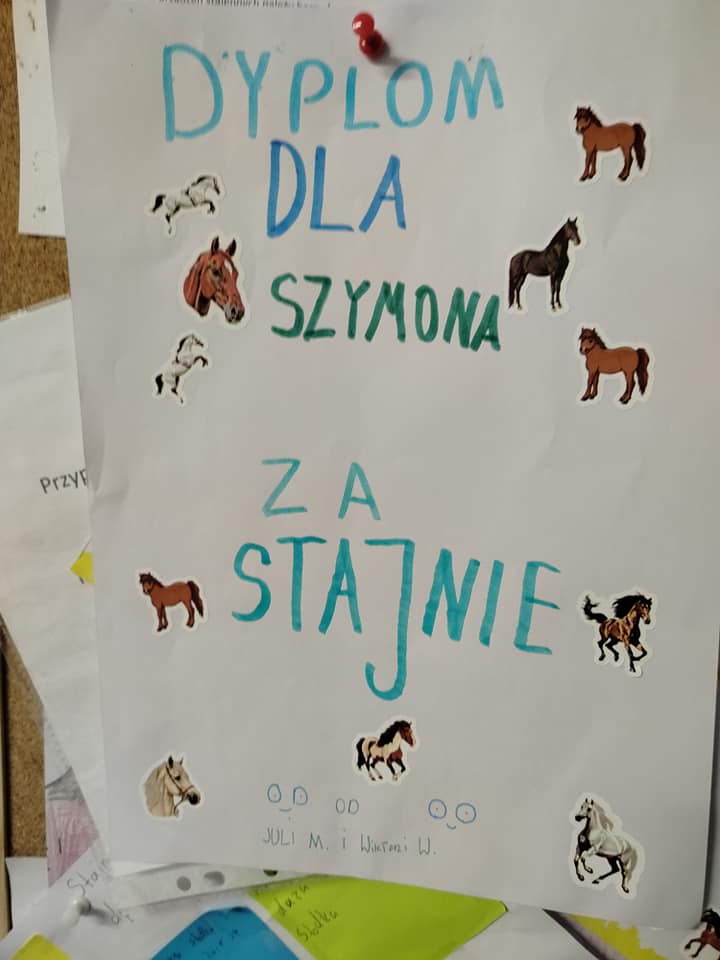 DYPLOM
DLA
SZYMONA
ZA
STAJNIE
OD
JULI M. i Wiktori W.